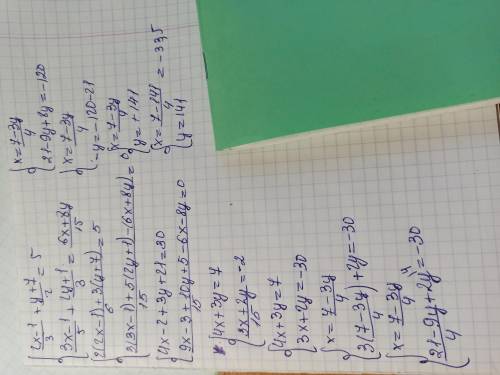 {(2x-1)/3 + (y+7)/2 = 5
{(3x-1)/5 + (2y+1)/3 = (6x+8y)/15
{2(2x-1)+3(y+7) = 5
{(3(3x-1)+5(2y+1)-(6x+8y))/15 = 0
{4x-2+3y+21=30
{(9x-3+10y+5-6x-8y)/15=0
{4x+3y=7
{(3x+2y)/15=-2
{4x+3y=7
{3x+2y=-30
{x=(7-3y)/4
{3(7-3y)/4+2y=-30
{x=(7-3y)/4
{(21-9y)/4+2y=-30
{x=(7-3y)/4
{21-9y+8y=-120
{x=(7-3y)/4
{-y=-120-21
{x=(7-3y)/4
{y=+141
{x=(7-141)/4=-335
{y=141